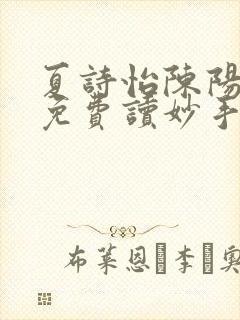 夏詩怡陳陽
免費讀妙手
布萊恩·李·奧